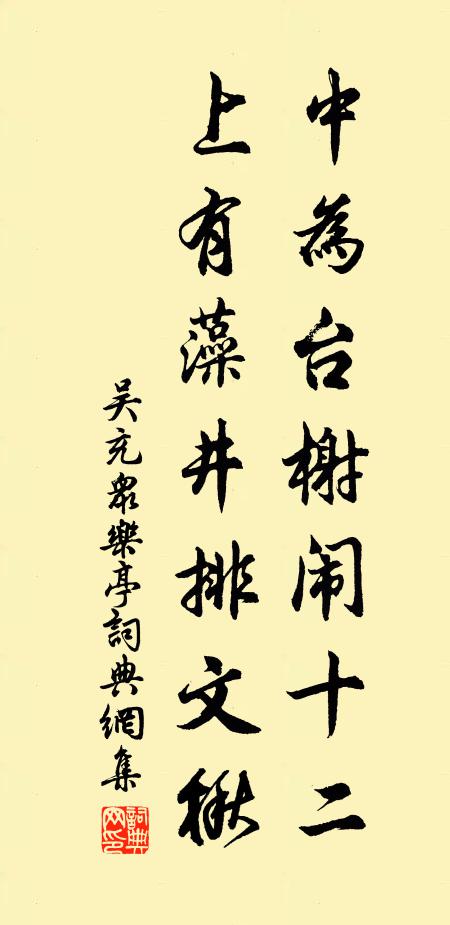 中為台榭闹十二
上有藻井排文楸
吴充衆樂亭詞典網集
詞典網印